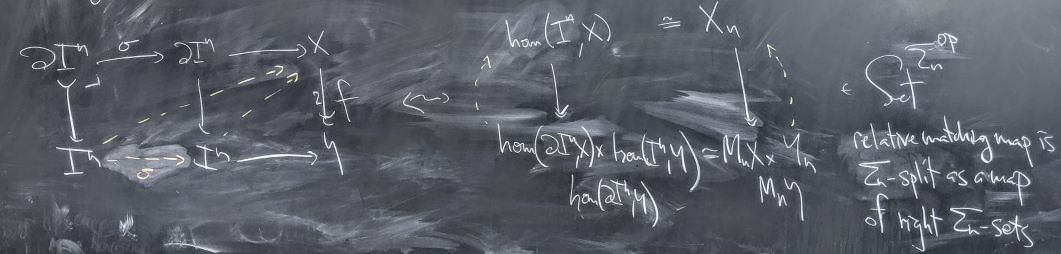 ∂Iⁿ σ ∂Iⁿ X
≀ f
Iⁿ σ Iⁿ Y
↭
hom(Iⁿ, X) ≅ Xₙ
hom(∂Iⁿ, X) × hom(Iⁿ, Y) ≅ MₙX × Yₙ
hom(∂Iⁿ, Y) MₙY
∈ Set^Σₙ^op
relative matching map is
Σₙ-split as a map
of right Σₙ-sets